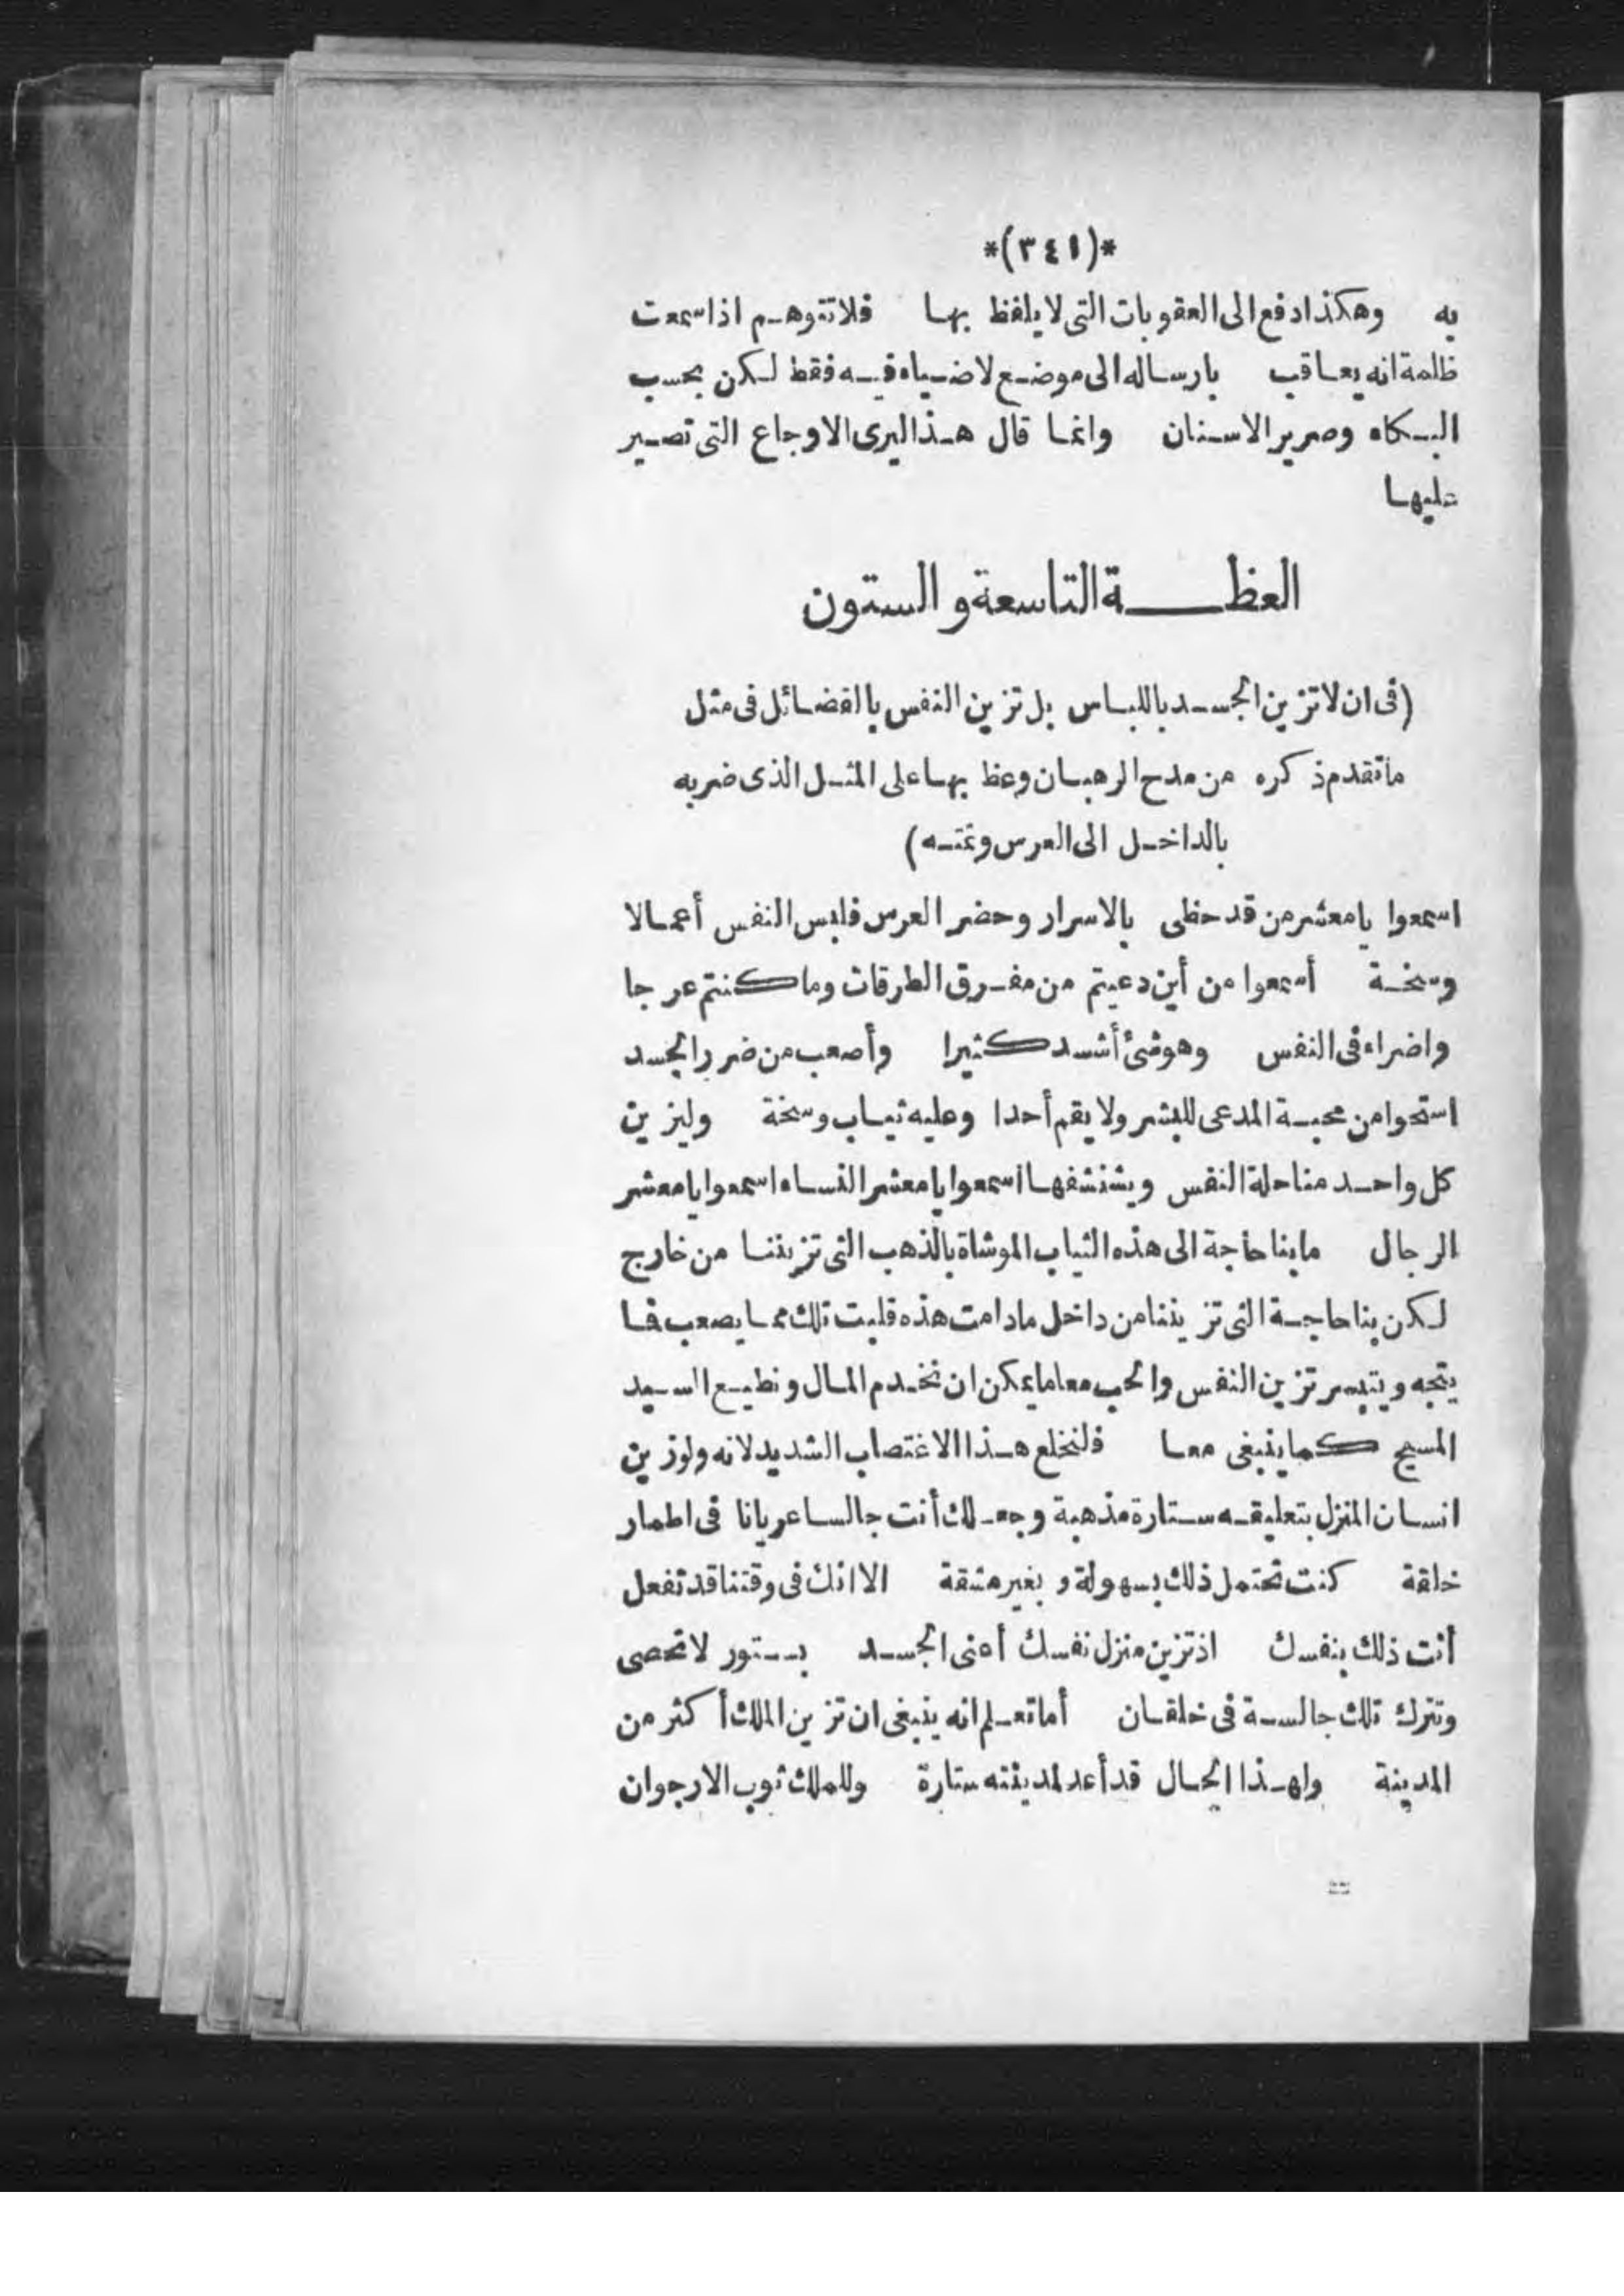 *(٣٤١)*
به وهكذا دفع الى العقوبات التى لا يلفظ بها فلا تتوهم اذا سمعت
ظلمة انه يعاقب بارساله الى موضع لا ضياء فيه فقط لكن بحسب
البكاء وصرير الاسنان وانما قال هذا ليرى الاوجاع التى تصير
عليها
العظة التاسعة والستون
(فى ان لا تزين الجسد باللباس بل تزين النفس بالفضائل فى مثل
ما تقدم ذكره من مدح الرهبان وعظ بها على المثل الذى ضربه
بالداخل الى العرس وتمته)
اسمعوا يا معشر من قد حظى بالاسرار وحضر العرس فلبس النفس أعمالا
وسخة أسمعوا من أين دعيتم من مفرق الطرقات وما كنتم عرجا
واضراء فى النفس وهو شئ أشد كثيرا وأصعب من ضرر الجسد
استحوا من محبة المدعى للبشر ولا يقم أحدا وعليه ثياب وسخة وليزين
كل واحد منا حلة النفس وينشفها اسمعوا يا معشر النساء اسمعوا يا معشر
الرجال ما بنا حاجة الى هذه الثياب الموشاة بالذهب التى تزيننا من خارج
لكن بنا حاجة التى تزيننا من داخل ما دامت هذه فليت تلك مما يصعب فما
يتجه ويتيسر تزين النفس والحب معا ما يمكن ان نخدم المال ونطيع السيد
المسيح كما ينبغى معا فلنخلع هذا الاغتصاب الشديد لانه ولو زين
انسان المنزل بتعليقه ستارة مذهبة وجعلك أنت جالسا عريانا فى اطمار
خلقة كنت تحتمل ذلك بسهولة وبغير مشقة الا انك فى وقتنا قد تفعل
أنت ذلك بنفسك اذ تزين منزل نفسك أعنى الجسد بستور لا تحصى
وتترك تلك جالسة فى خلقان أما تعلم انه ينبغى ان تزين الملك أكثر من
المدينة ولهذا الحال قد أعد لمدينته ستارة وللملك ثوب الارجوان